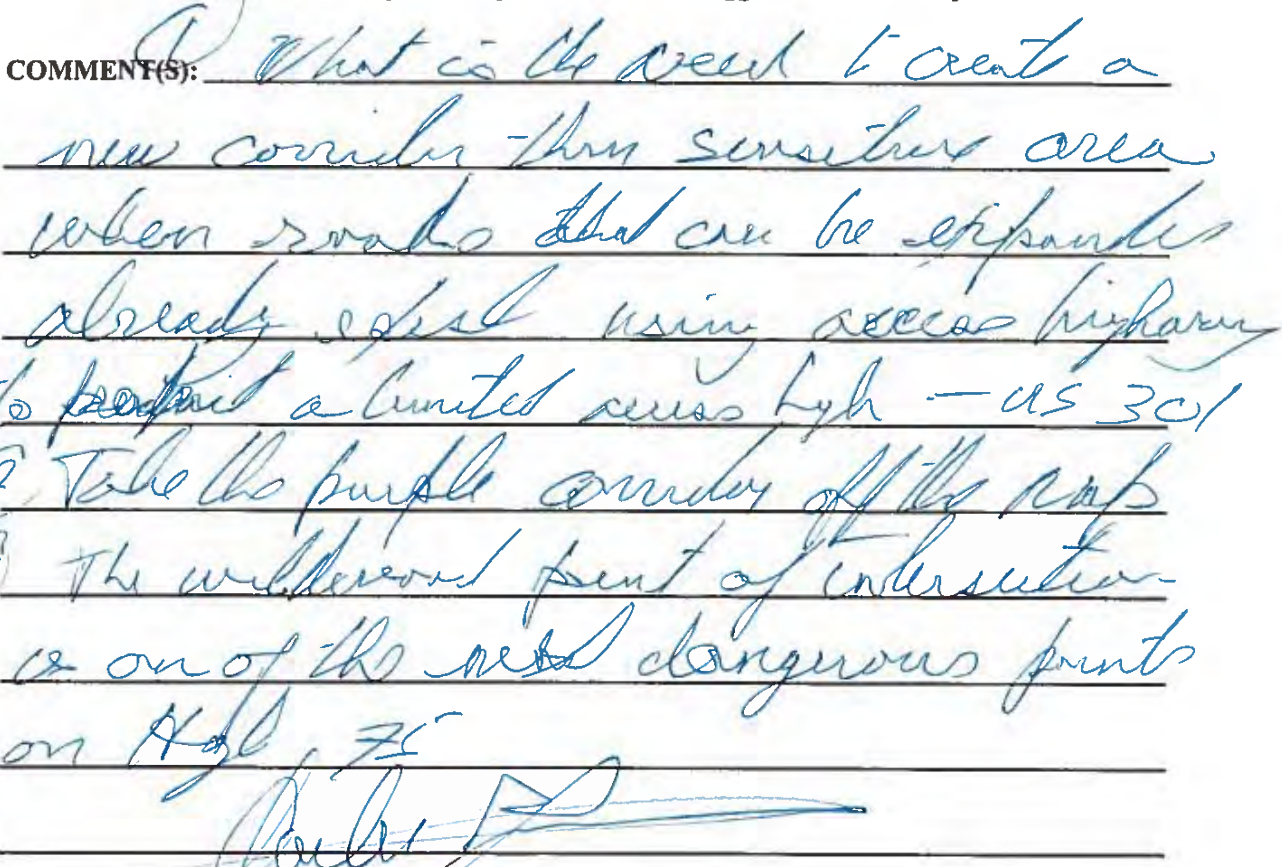 COMMENT(S): ① What is the need to create a
new corridor thru sensitive area
when roads that can be expanded
already exist using access highway
to a limited access high — US 301
2 Take the purple corridor off the map
The wildwood point of intersection
is on of the most dangerous points
on 75